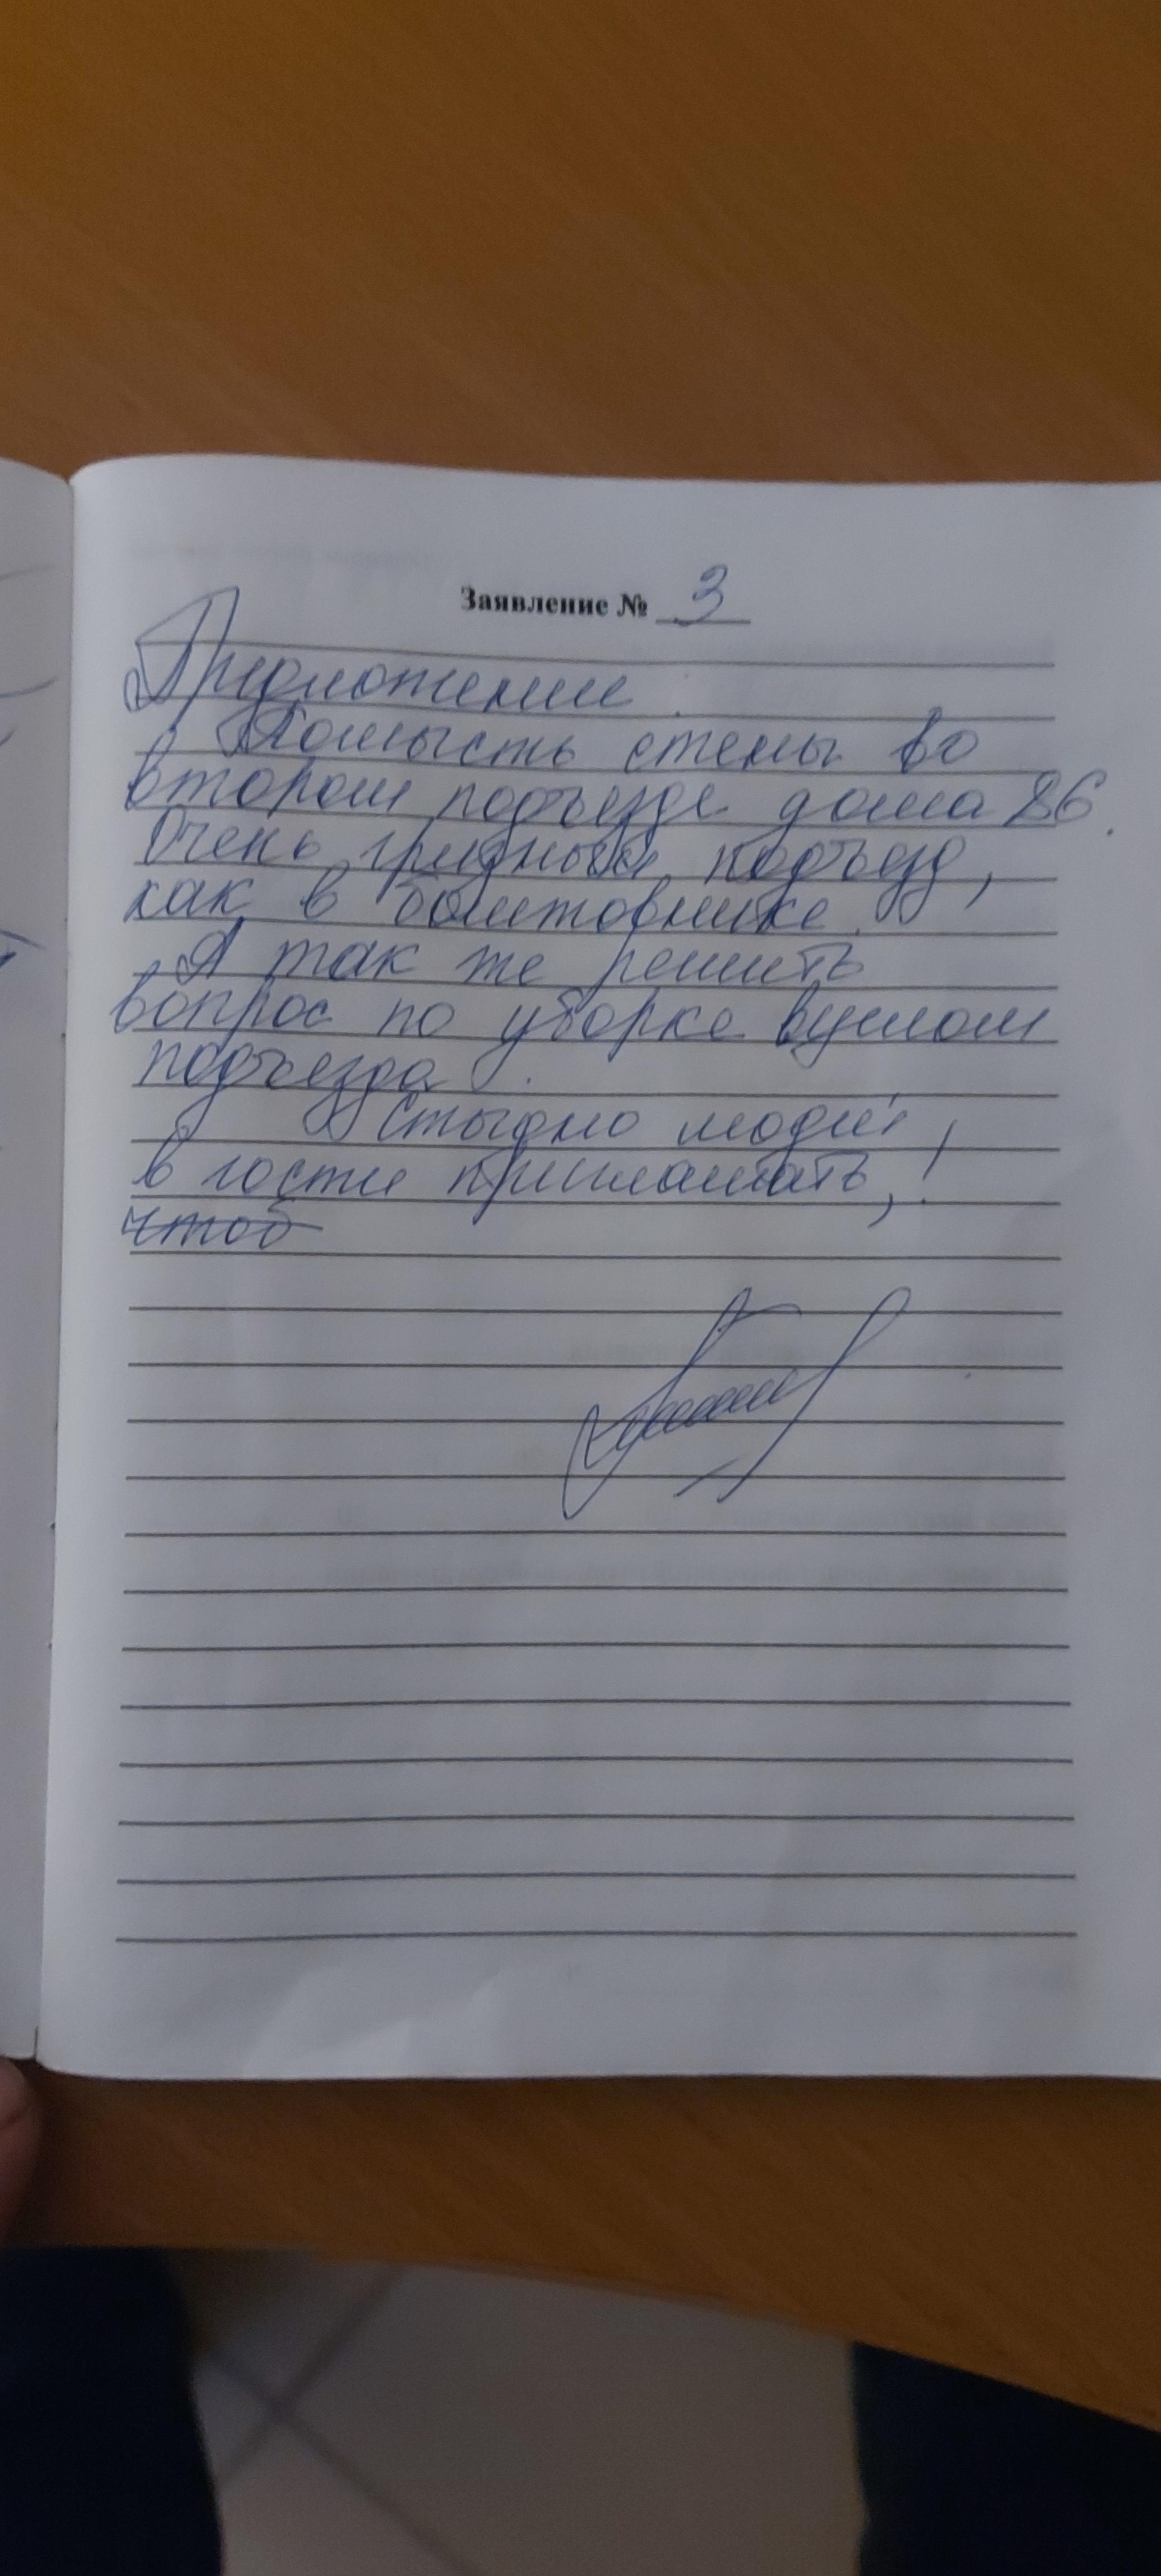 Заявление № 3
Предложение
Помысть стены во
втором подъезде дома 86.
Очень грязный подъезд,
как в бомтовнике.
А так же решить
вопрос по уборке вцелом
подъезда.
Стыдно людей,
в гости приглашать, !
чтоб